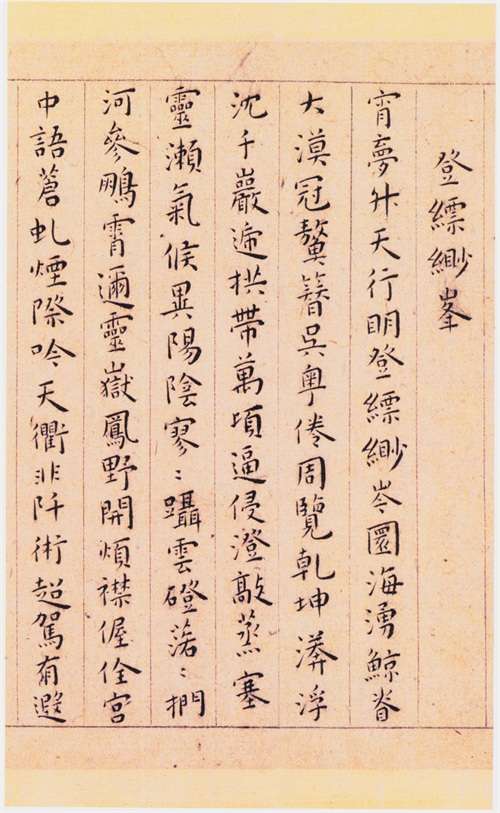 登縹緲峯
宵夢升天行明登縹緲岑圜海湧鯨脊
大漠冠鰲簪吳粵倦周覽乾坤漭浮
沈千巖遞拱帶萬頃逼侵澄敲蒸塞
靈瀨氣候異陽陰寥〻躡雲磴蕩〻捫
河參鵬霄邇靈嶽鳳野開煩襟偓佺宮
中語蒼虬煙際吟天衢非阡術超駕有遐